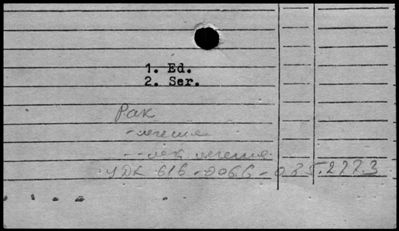 1. Ed.
2. Ser.
Рак
- лечение
-- лек лечение
УДК 616-006.6-085.277.3